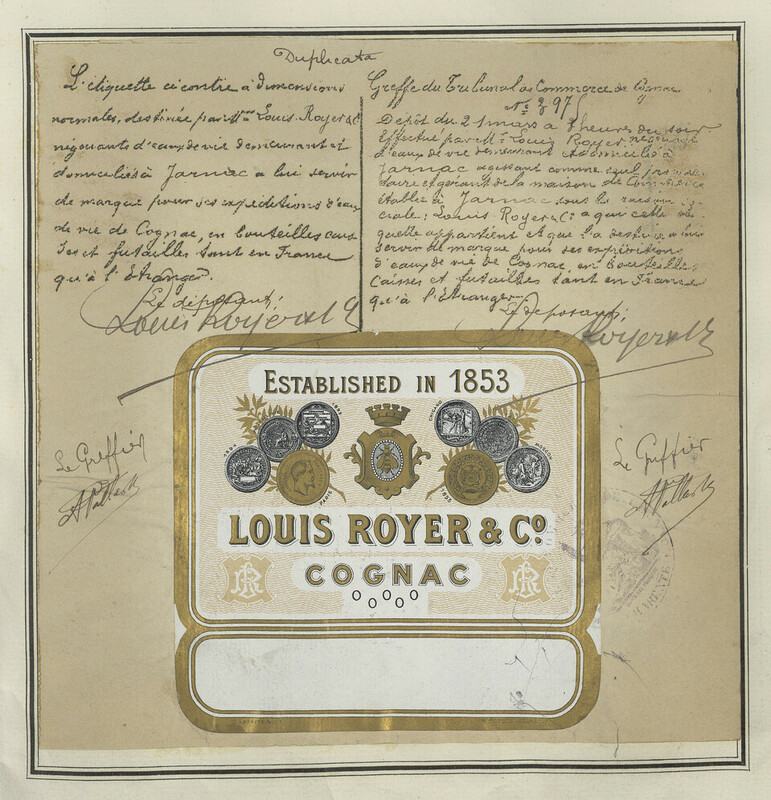 Duplicata
L'étiquette ci contre à dimensions
normales, destinée par Mr Louis Royer & Ce
négociants d'eaux de vie demeurant et
domiciliés à Jarnac à lui servir
de marque pour ses expéditions d'eaux
de vie de Cognac, en bouteilles cais
ses et futailles tant en France
qu'à l'Etranger.
Le déposant;
Louis Royer & Co
Greffe du Tribunal de Commerce de Cognac
No 397
Dépôt du 21 mars à 3 heures du soir
Effectué par Mr Louis Royer, négociant
d'eaux de vie demeurant et domicilié à
Jarnac agissant comme seul
et gérant de la maison de Commerce
établie à Jarnac sous la raison so-
ciale: Louis Royer & Co à qui cette éti
quette appartient et qui l'a destinée à lui
servir de marque pour ses expéditions
d'eaux de vie de Cognac, en bouteilles
Caisses et futailles tant en France
qu'à l'Etranger
Le déposant;
Louis Royer & Co
ESTABLISHED IN 1853
LOUIS ROYER & Co.
COGNAC
OOOOO
Le Greffier
Le Greffier